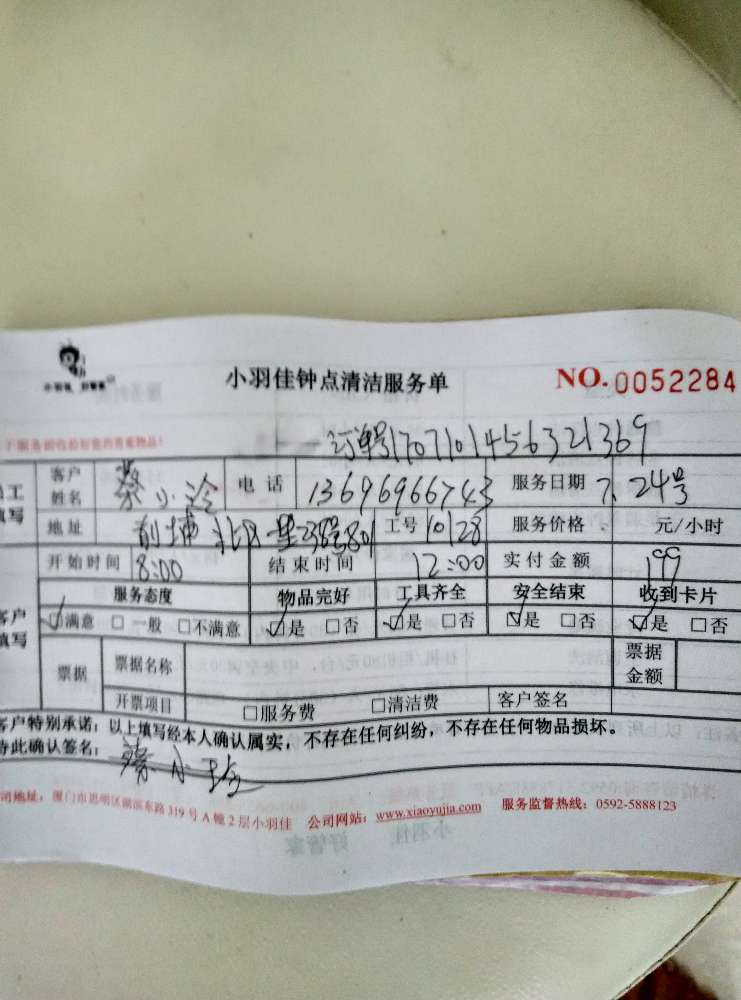 小羽佳 好管家
小羽佳钟点清洁服务单
NO.0052284
订单号1707101456321369
客户姓名 蔡小冷 电话 13696966743 服务日期 7.24号
填写 地址 前埔北 工号 10128 服务价格 元/小时
开始时间 8:00 结束时间 12:00 实付金额 199
服务态度 物品完好 工具齐全 安全结束 收到卡片
客户填写 ☑满意 □一般 □不满意 ☑是 □否 ☑是 □否 ☑是 □否 ☑是 □否
票据 票据名称 票据金额
开票项目 □服务费 □清洁费 客户签名
客户特别承诺：以上填写经本人确认属实，不存在任何纠纷，不存在任何物品损坏。
特此确认签名：蔡小
司地址：厦门市思明区湖滨东路319号A幢2层小羽佳 公司网站：www.xiaoyujia.com 服务监督热线：0592-5888123